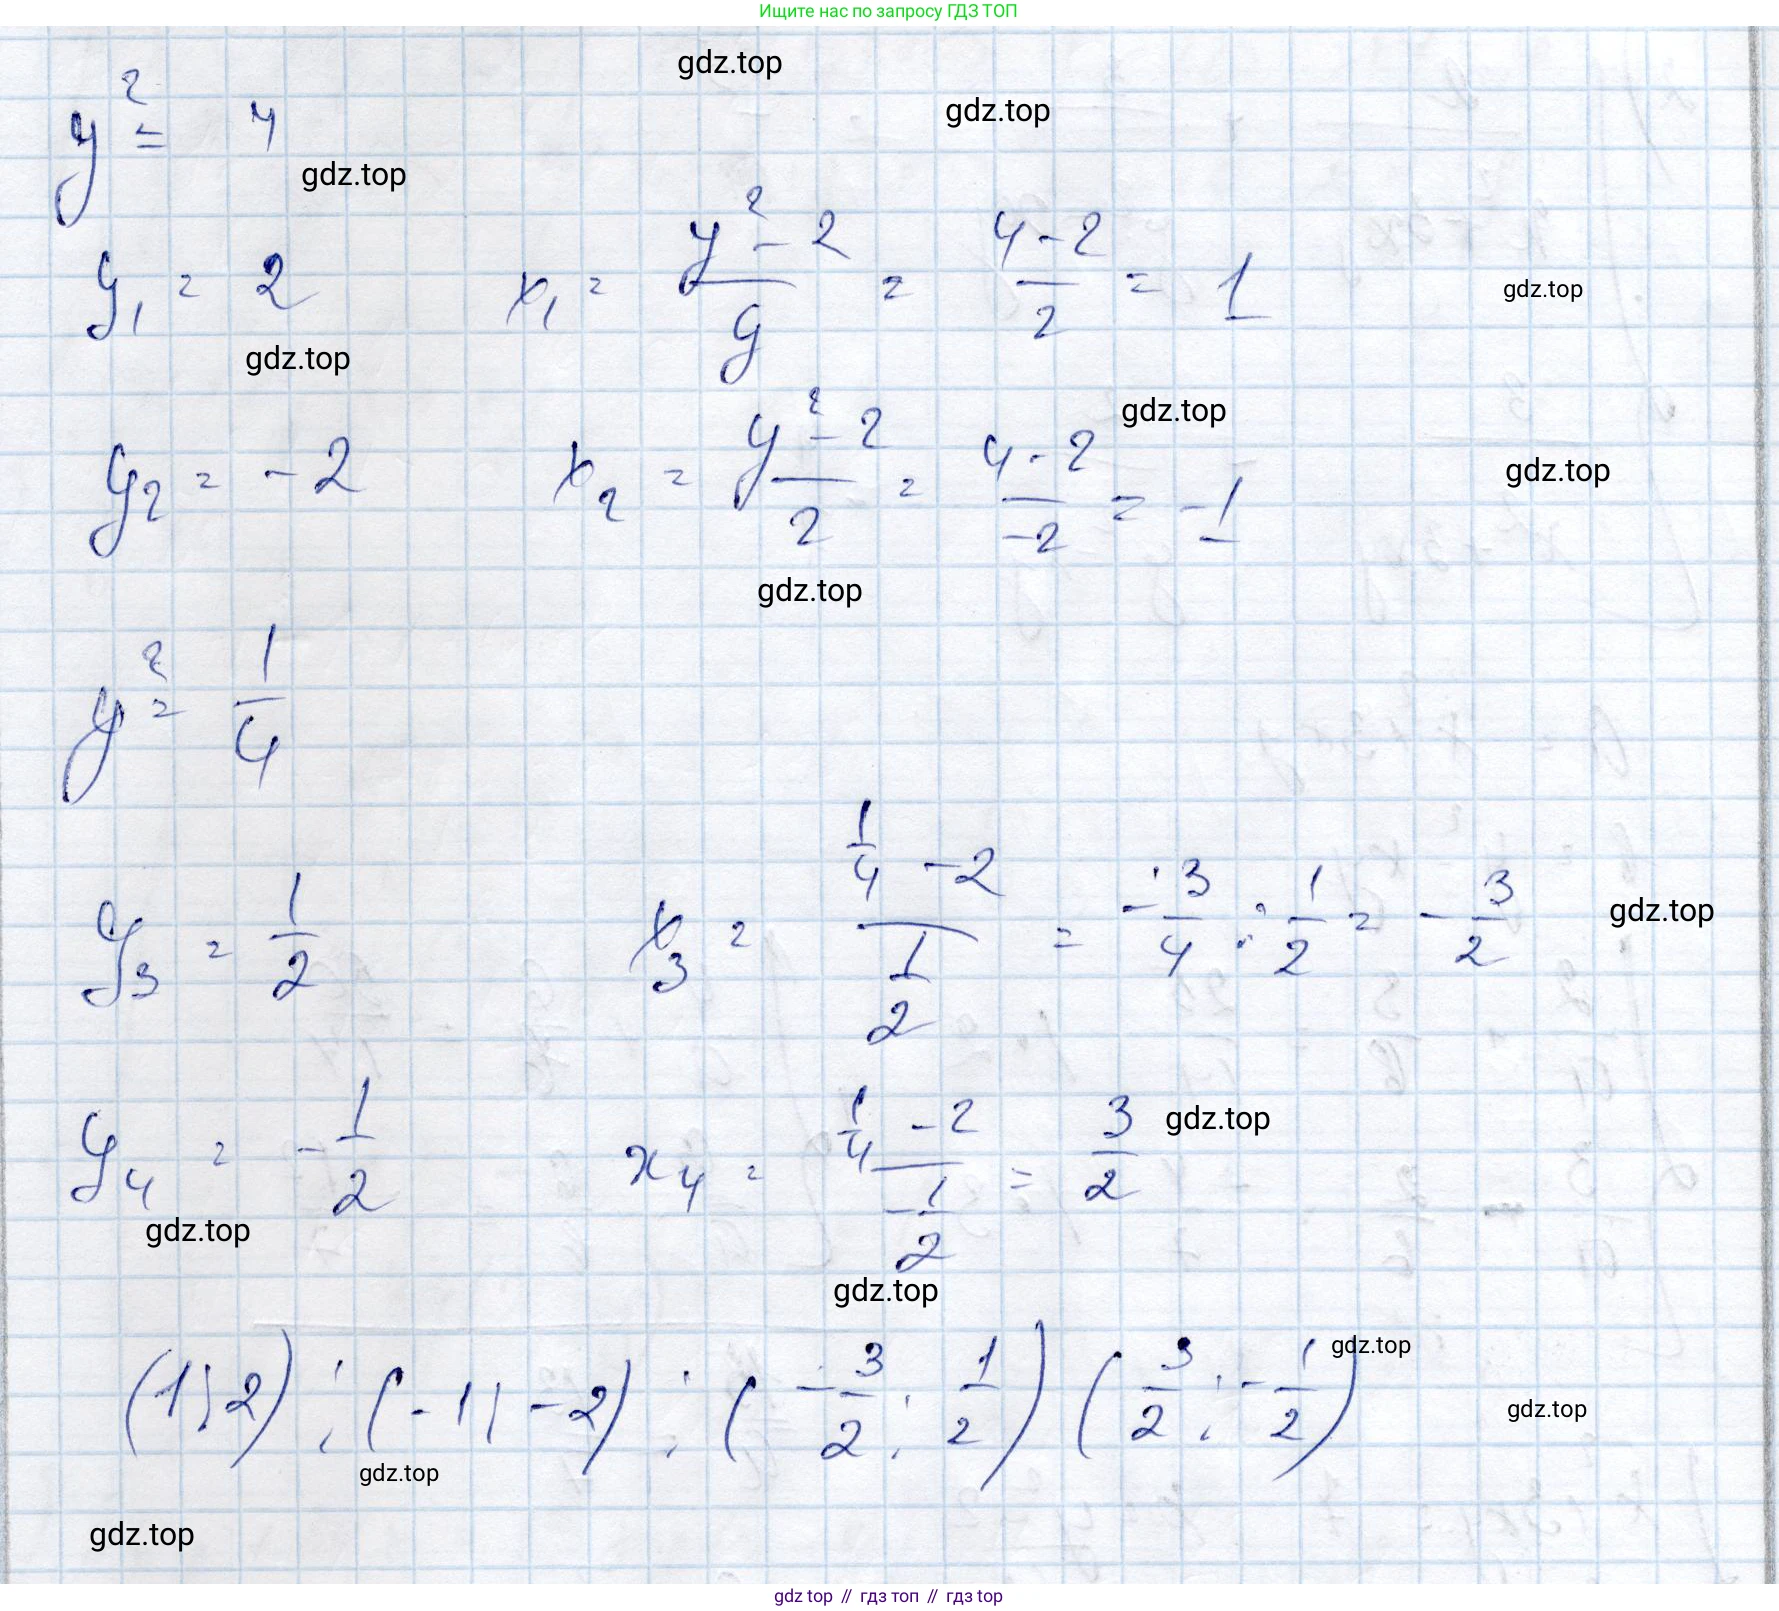 Ищите нас по запросу ГДЗ ТОП
gdz.top
gdz.top
y² = 4
gdz.top
y₁ = 2 x₁ = (y² - 2)/y = (4 - 2)/2 = 1
gdz.top
gdz.top
gdz.top
y₂ = -2 x₂ = (y² - 2)/2 = (4 - 2)/-2 = -1
gdz.top
gdz.top
y² = 1/4
y₃ = 1/2 x₃ = (1/4 - 2)/(1/2) = -3/4 : 1/2 = -3/2
gdz.top
y₄ = -1/2 x₄ = (1/4 - 2)/(-1/2) = 3/2
gdz.top
gdz.top
gdz.top
(1; 2) ; (-1; -2) ; (-3/2 ; 1/2) (3/2 ; -1/2)
gdz.top
gdz.top
gdz.top
gdz.top
gdz top // гдз топ // гдз top